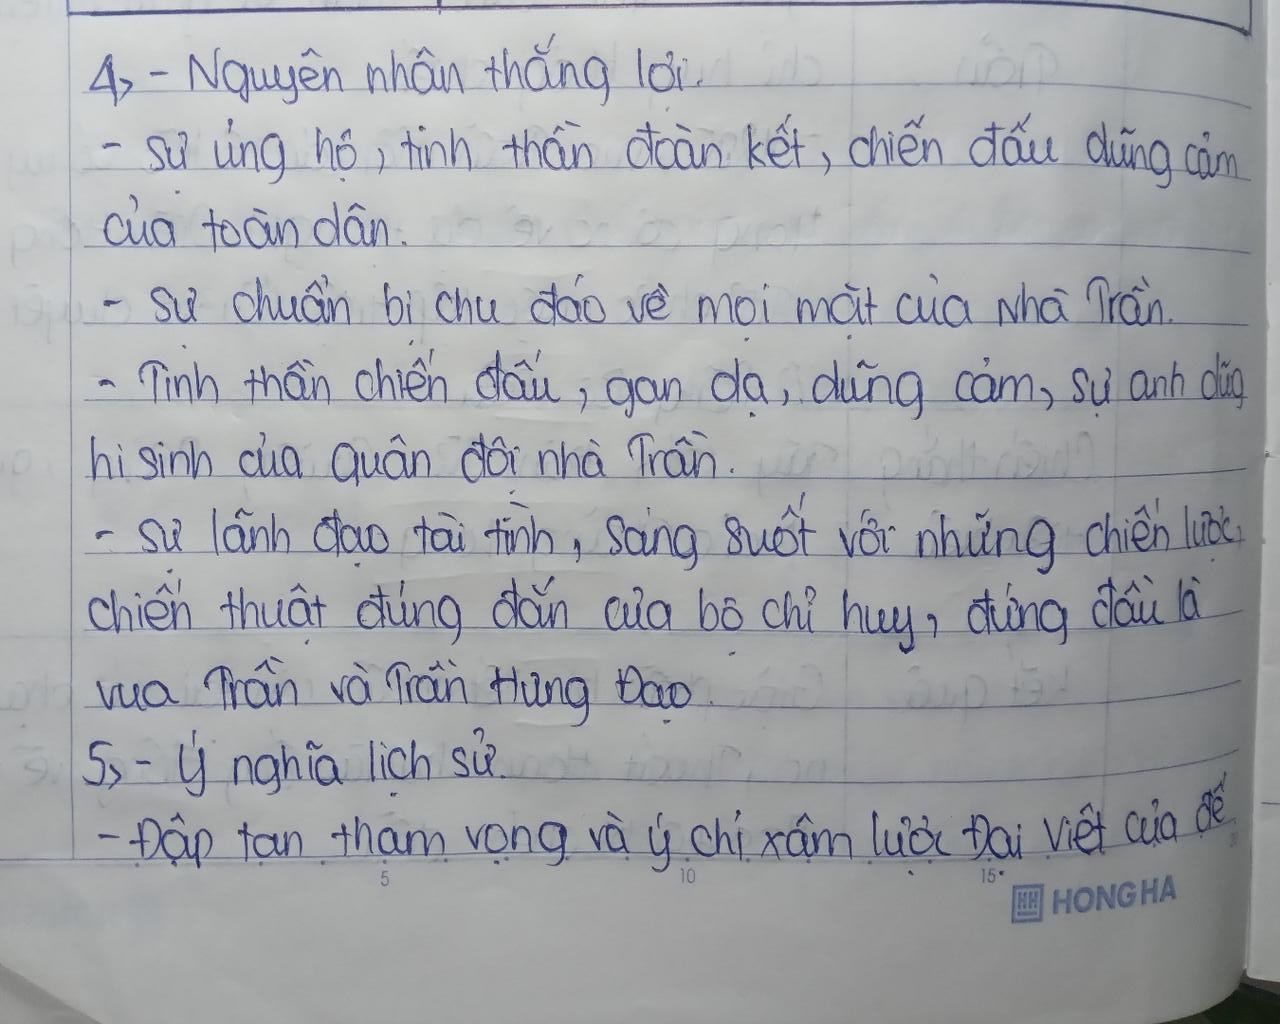 4, - Nguyên nhân thắng lợi.
- sự ủng hộ, tinh thần đoàn kết, chiến đấu dũng cảm
của toàn dân.
- sự chuẩn bị chu đáo về mọi mặt của nhà Trần.
- Tinh thần chiến đấu, gan dạ, dũng cảm, sự anh dũg
hi sinh của quân đội nhà Trần.
- sự lãnh đạo tài tình, sáng suốt với những chiến lược,
chiến thuật đúng đắn của bộ chỉ huy, đứng đầu là
vua Trần và Trần Hưng Đạo.
5, - Ý nghĩa lịch sử.
- Đập tan tham vọng và ý chí xâm lược Đại Việt của đế
5 10 15
HH HONG HA